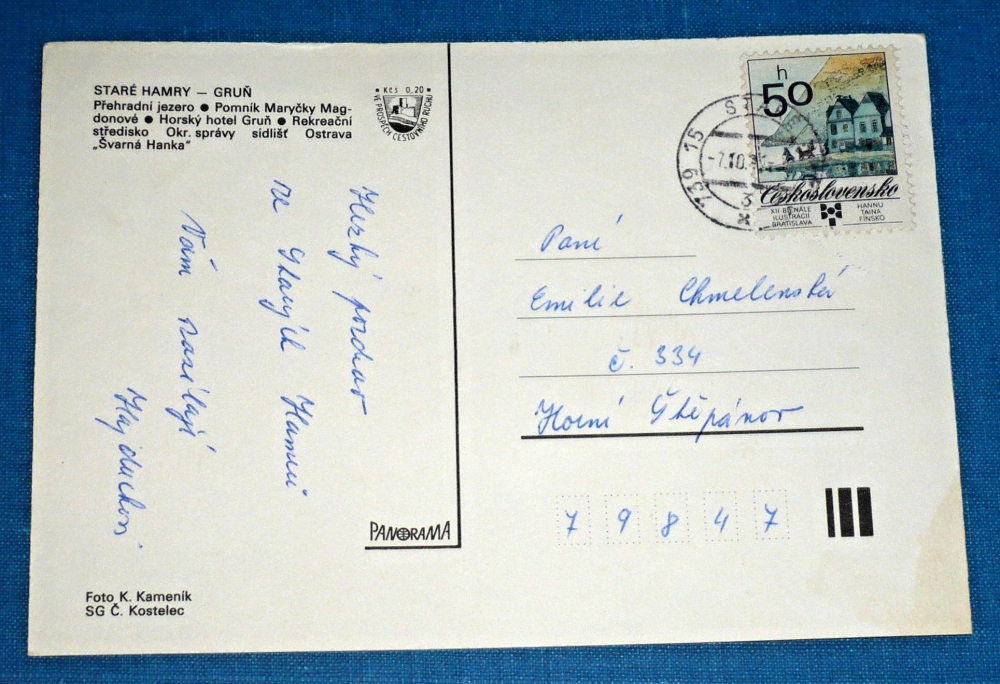 STARÉ HAMRY — GRUŇ
Přehradní jezero ● Pomník Maryčky Mag-
donové ● Horský hotel Gruň ● Rekreační
středisko Okr. správy sídlišť Ostrava
„Švarná Hanka"
Kčs 0,20
VE PROSPĚCH CESTOVNÍHO RUCHU
Hezký pozdrav
ze Starých Hamrů
Vám zasílají
Hajduchovi
PANORAMA
Foto K. Kameník
SG Č. Kostelec
739 15
-7.10.
3
50 h
Československo
XII. BIENÁLE
ILUSTRÁCIÍ
BRATISLAVA
HANNU
TAINA
FÍNSKO
Paní
Emilie Chmelenská
č. 334
Horní Štěpánov
7 9 8 4 7